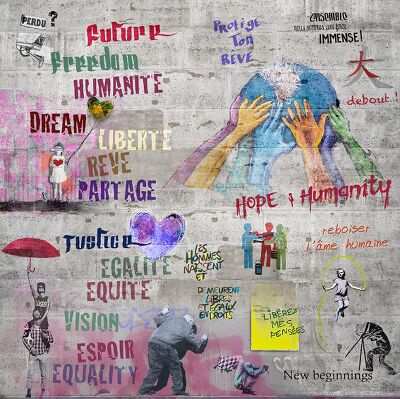 PERDU ?
future
freedom
HUMANITE
DREAM
LIBERTE
REVE
PARTAGE
Justice
EGALITE
EQUITE
VISION
ESPOIR
EQUALITY
Protège
Ton
REVE
ENSEMBLE
IMMENSE!
大
debout!
HOPE & Humanity
reboiser
l'âme humaine
LES
HOMMES
NAISSENT
ET
DEMEURENT
LIBRES
ET EGAUX
EN DROITS
LIBÉREZ
MES
PENSÉES
New beginnings